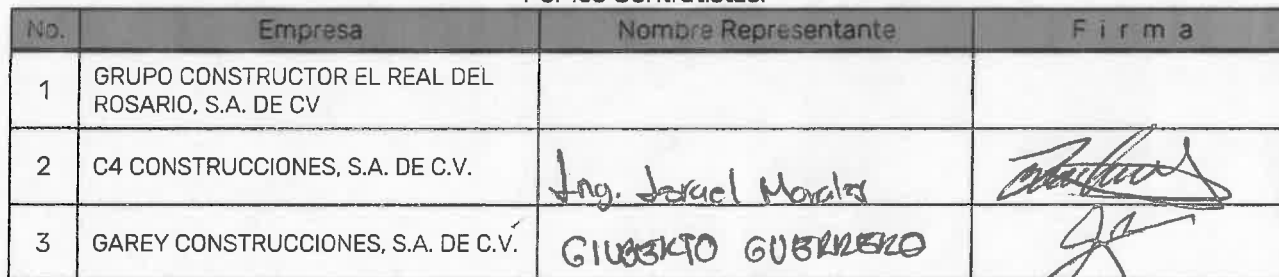 Por los Contratistas:
No. Empresa Nombre Representante Firma
1 GRUPO CONSTRUCTOR EL REAL DEL
ROSARIO, S.A. DE CV
2 C4 CONSTRUCCIONES, S.A. DE C.V. Ing. Israel Morales
3 GAREY CONSTRUCCIONES, S.A. DE C.V. GILBERTO GUERRERO